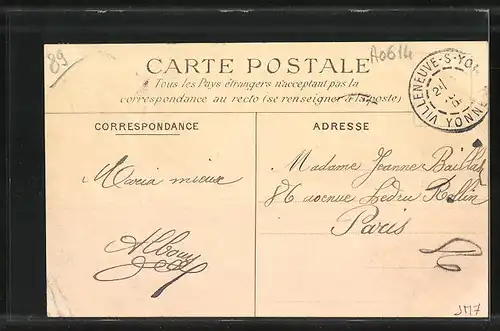 89
A0614
CARTE POSTALE
Tous les Pays étrangers n'acceptant pas la
correspondance au recto (se renseigner à la poste)
VILLENEUVE-S-YON
YONNE
CORRESPONDANCE
ADRESSE
Maria mieux
Madame Jeanne
86 avenue Ledru Rollin
Paris